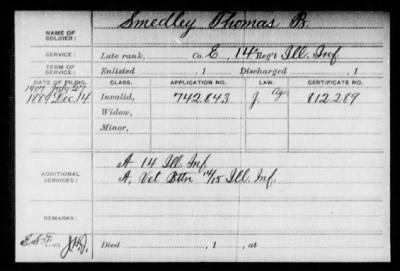 NAME OF SOLDIER: Smedley Thomas B.
SERVICE: Late rank, Co. E, 14 Reg't Ill. Inf.
TERM OF SERVICE: Enlisted , 1 Discharged , 1
DATE OF FILING. CLASS. APPLICATION NO. LAW. CERTIFICATE NO.
1907 July 27
1889 Dec. 14 Invalid, 742.843 J. Age 812.289
Widow,
Minor,
A 14 Ill. Inf.
ADDITIONAL SERVICES: A, Vet Battn 14/15 Ill. Inf.
REMARKS:
Died , 1 , at